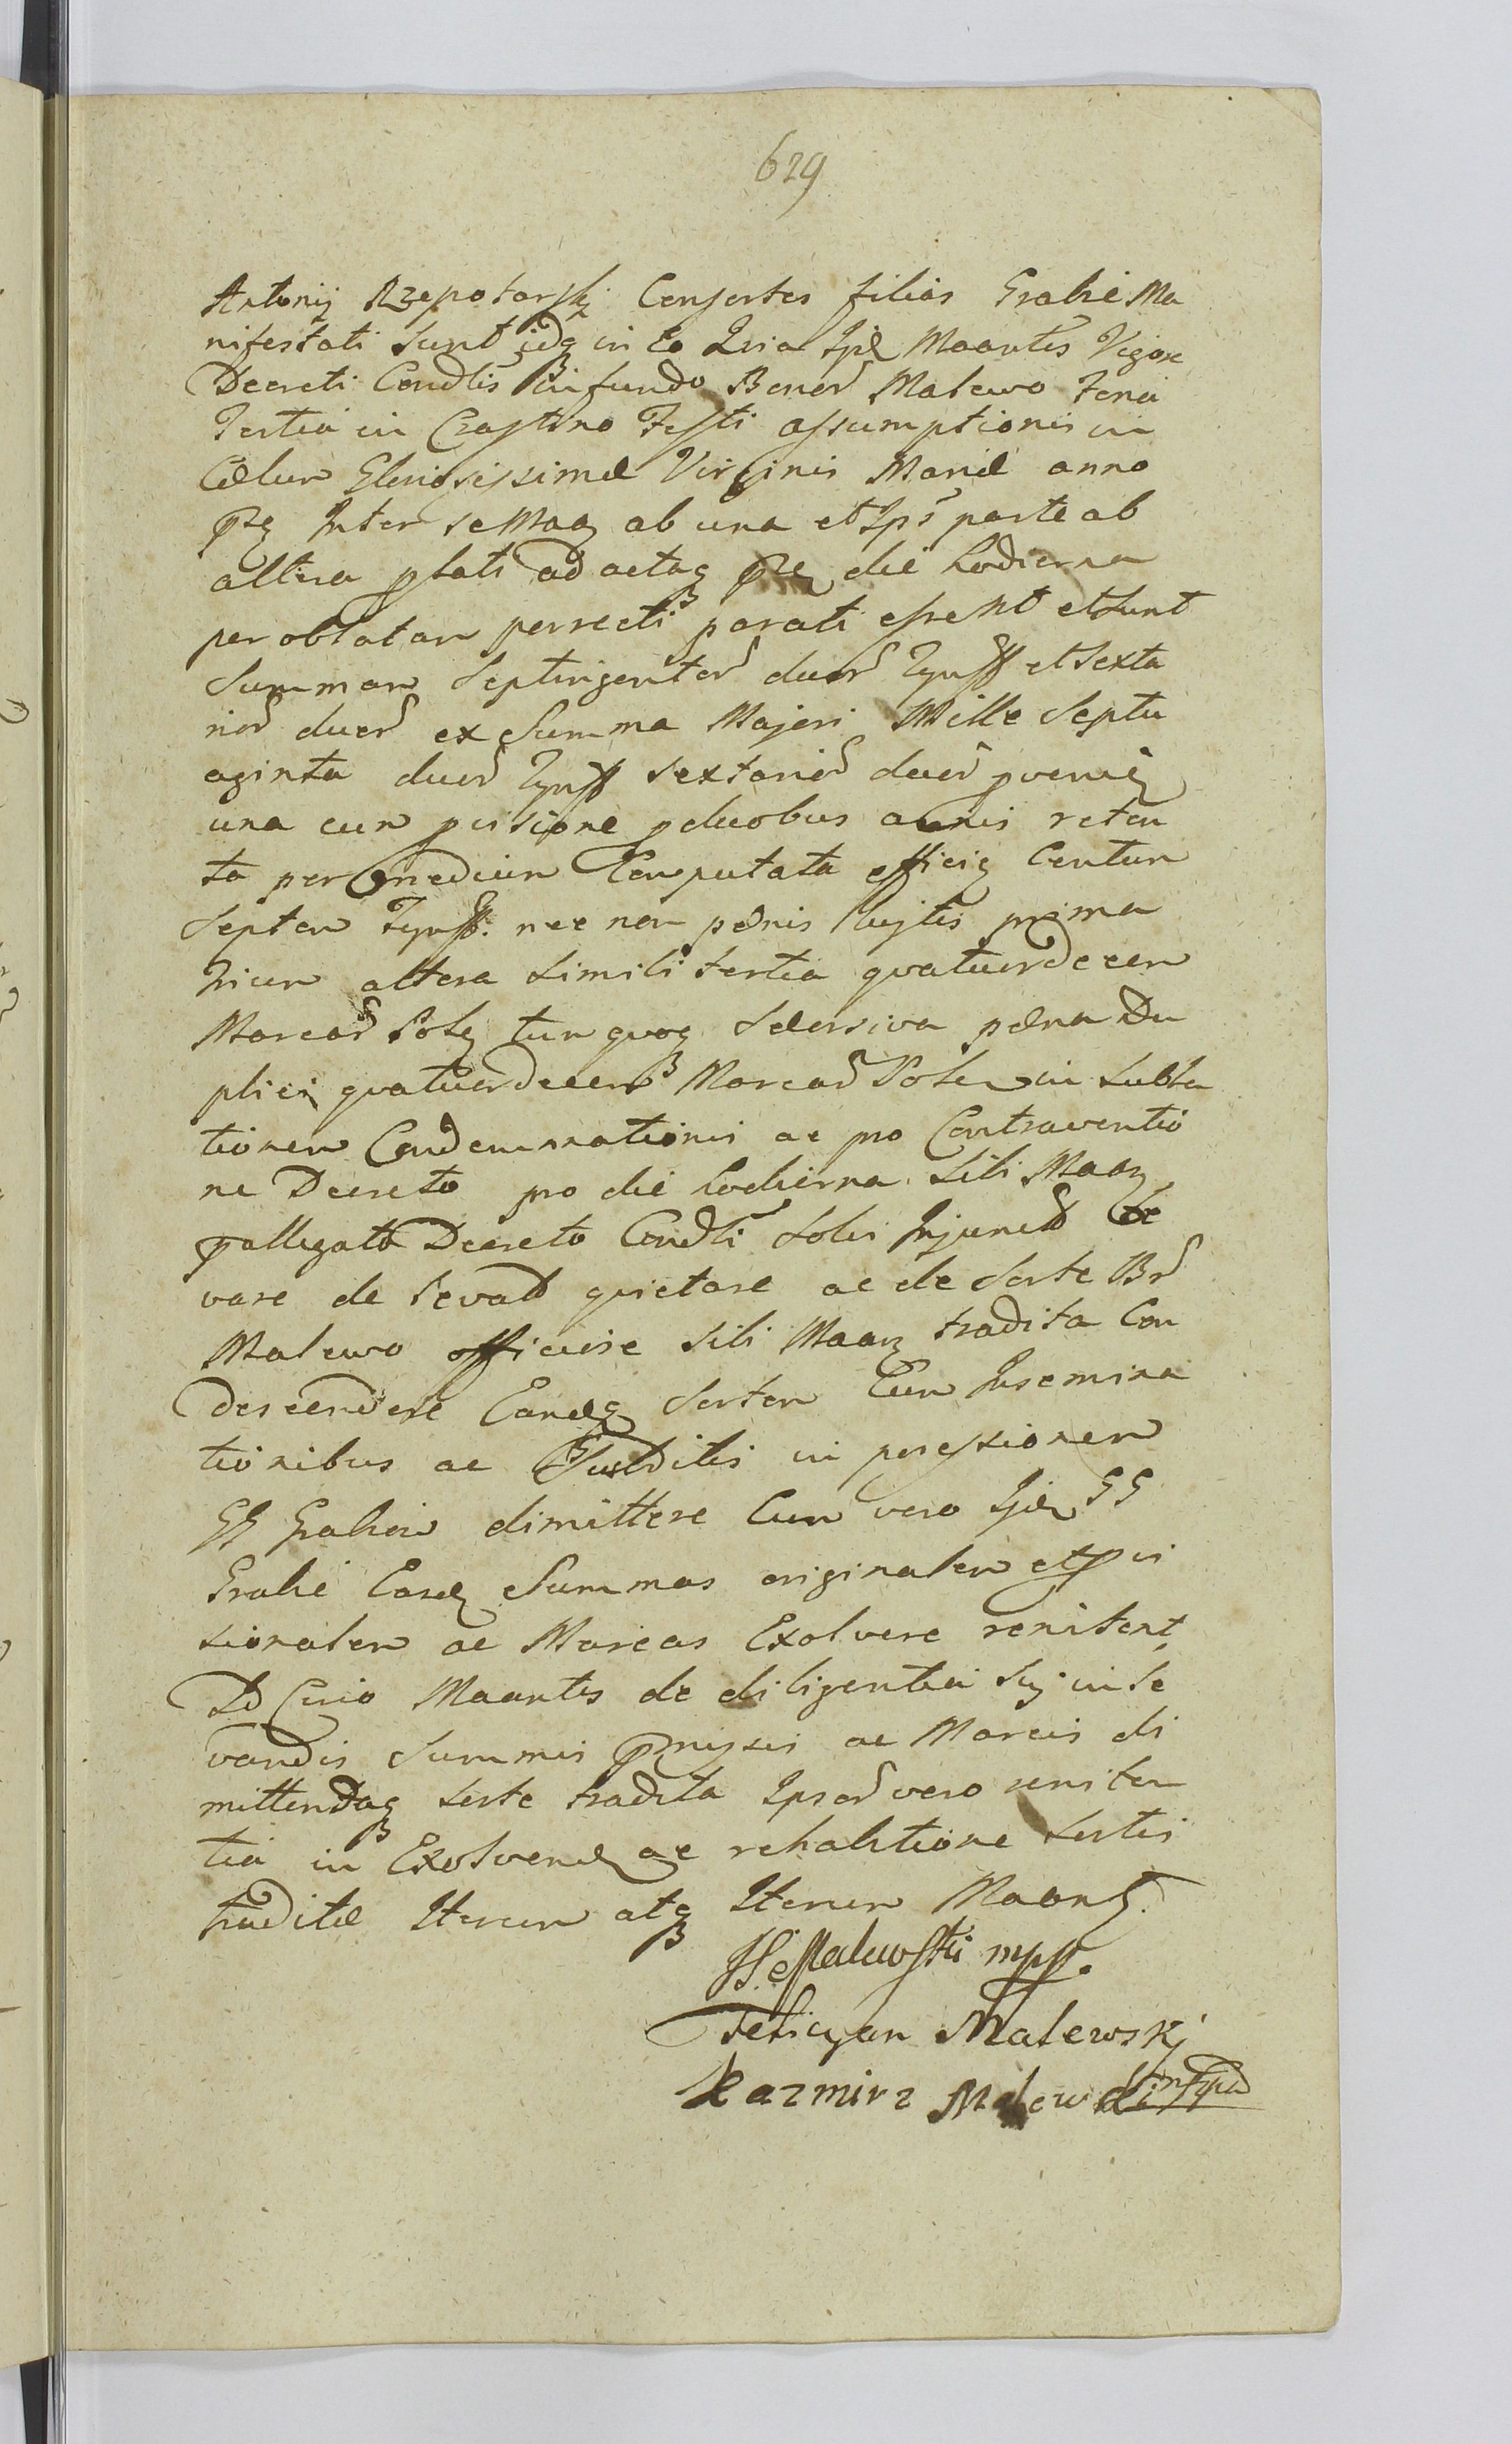 629
Antonij Rzepotarskj Consortes filios Grabie Ma
nifestati Sunt idq in Eo Quia Ipi Maantes Vigore
Decreti Condlis in fundo Bonor Malewo Feria
Tertia in Crastino Festi assumptionis in
Cælum Gloriosissimæ Virginis Mariæ anno
Inter se Maan ab una et Ips parte ab
altera plati ad actaq die hodierna
per oblatam perrecti parati essent et sunt
Summam Septingentor duor Tynff et Sexta
rior duor ex Summa Majori Mille Septu
aginta duor Tynff Sextarior duor
una cum pvisione pduobus annis reten
ta per medium Computata efficien Centum
Septem Tynff. nec non pænis lujtis prima
trium altera simili tertia quatuordecem
Marcar Pol tum quoq Sælersiva pæna Du
plici quatuordecem Marcar Polon in subla
tionem Condemnationis ac pro Contraventio
ne Decreto pro die hodierna Sibi Maan
pallegato Decreto Condli Solvi Injunct Le
vare de levato quietare ac de Sorte Br
Malewo officiose Sibi Maan tradita Con
descendere Eandq Sortem Cum Insemina
tionibus ac Subditis in possessionem
GG Grabiow dimittere Cum vero Ijd GG
Grabie Easd Summas originalem et pvi
sionalem ac Marcas Exolvere renitent
Do Circo Maantes de diligentia Suj in le
vandis Summis pmissis ac Marcis di
mittendaq Sorte tradita Ipsor vero reniten
tia in Exolvend ac rehabitione Sortis
traditæ Iterum atq Iterum Maant.
Malewski mpp.
Felicyan Malewskj
Kazmirz Malewski mppa